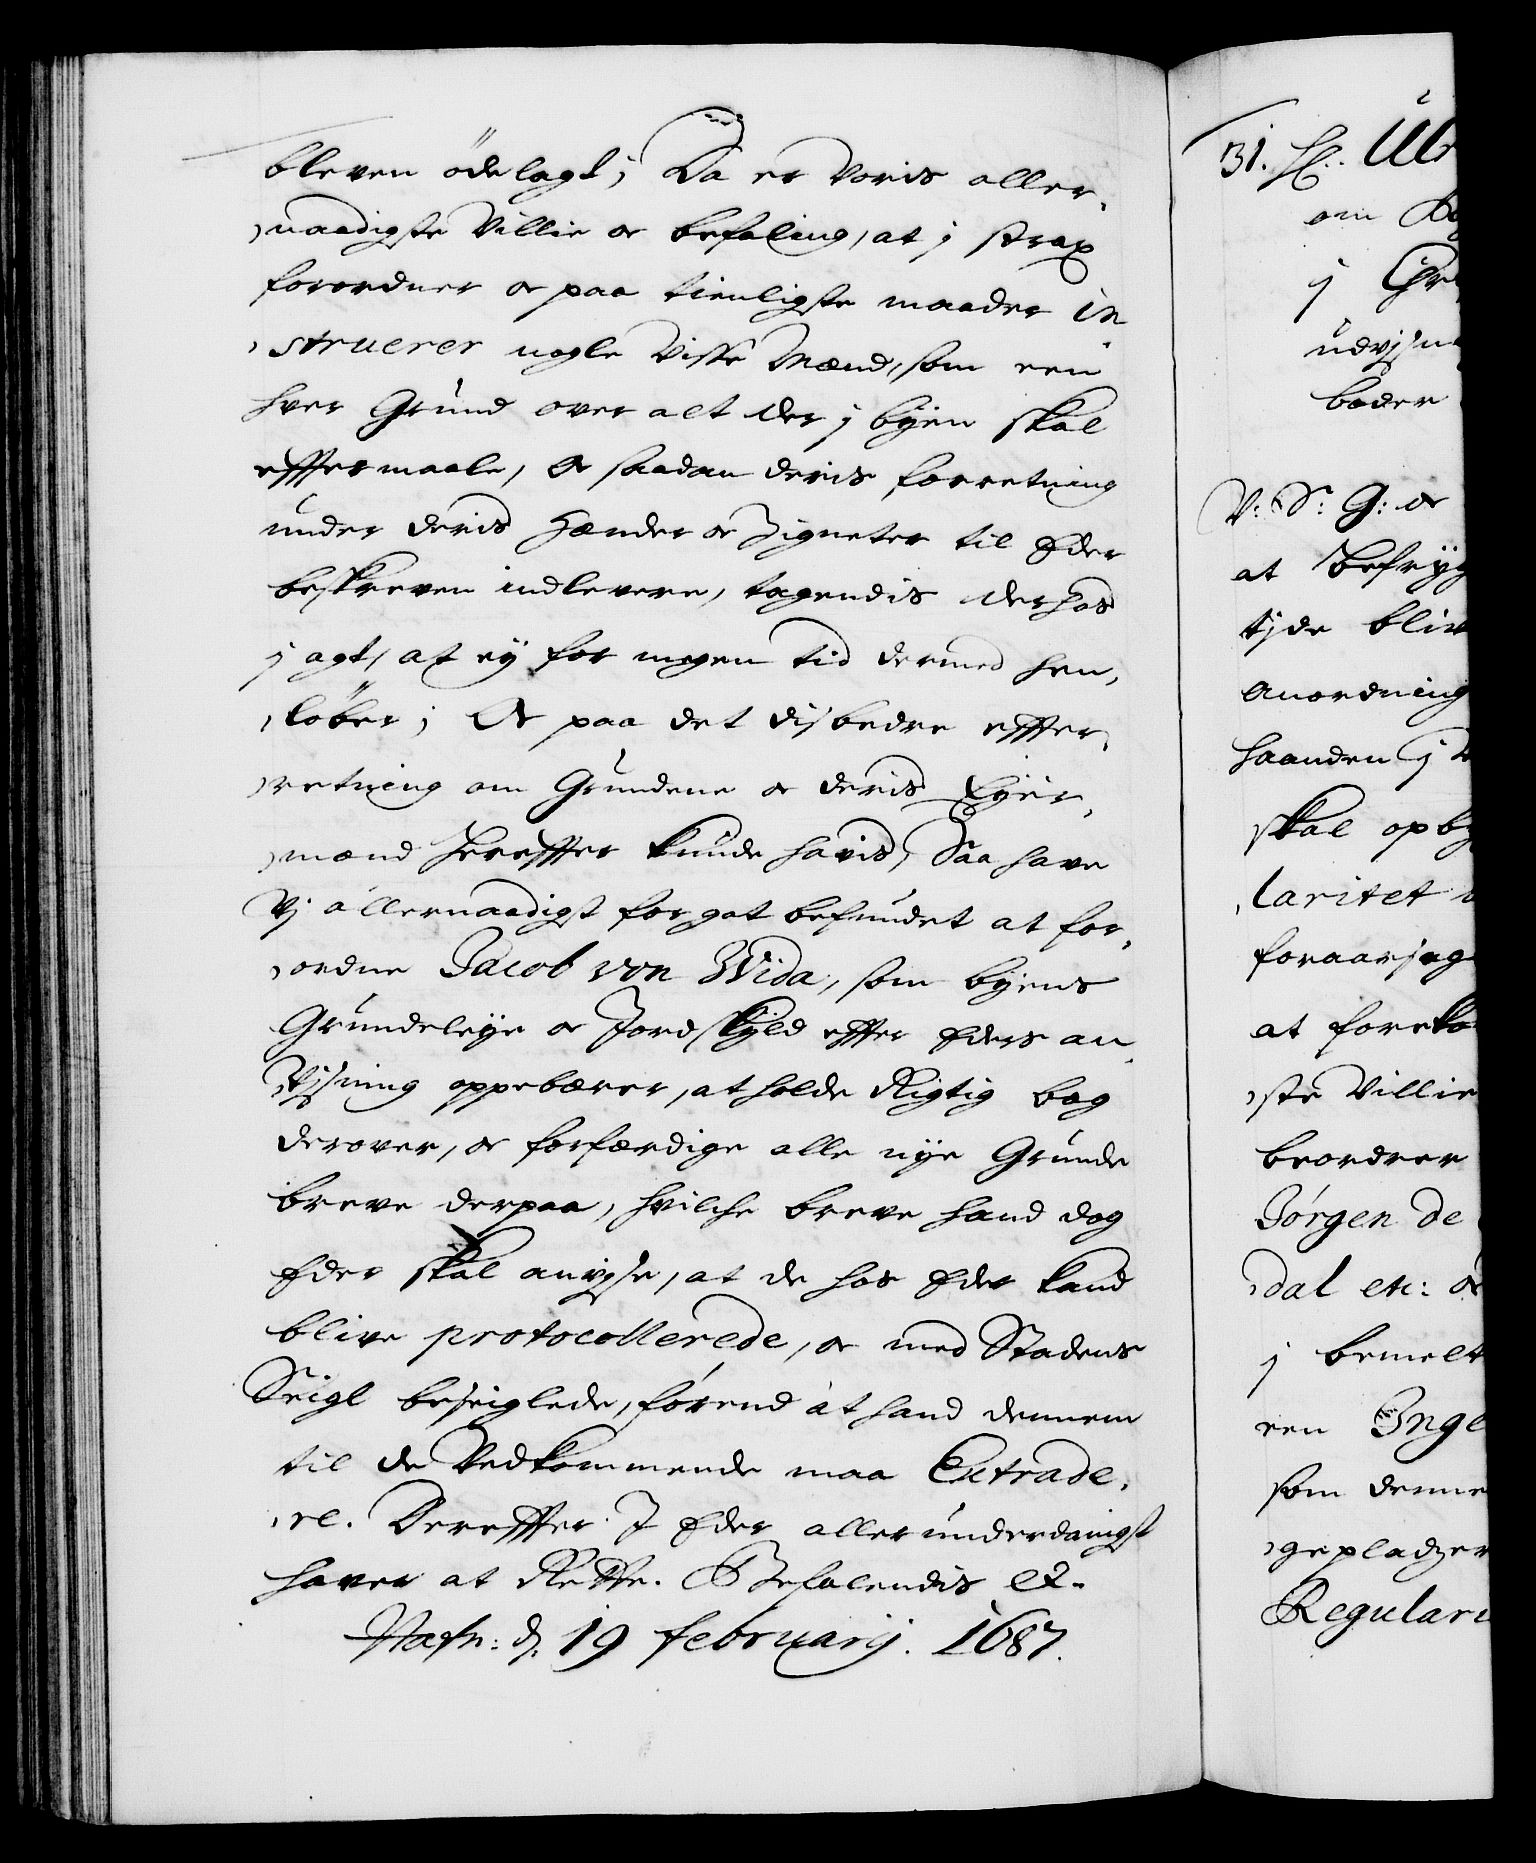 bleven ödelagt; Da er Voris aller,
,naadigste Villie oc befaling, at j strax
forordner oc paa tienligste maader in
,struerer nogle Visse Mænd, som een
hver Grund over alt der j byen skal
effter maale, Oc saadan deris forretning
under deris Hænder oc Zigneter til Eder
beskreven indlevere, tagendis derhos
j agt, at ey for megen tid dermed hen,
,löber; Oc paa det disbedre effter,
,retning om Grundene oc deris Eyer,
,mænd hereffter kunde havis, Saa have
Vj allernaadigst for got befundet at for,
,ordne Jacob von Wida, som byens
Grundeleye oc Jordskyld effter Eders an,
Vjsning oppebærer, at holde Rigtig bog
derover, oc forfærdige alle nye Grunde
breve derpaa, hvilche breve hand dog
Eder skal anvjse, at de hos Eder kand
blive protocollerede, oc med Stadens
Seigl beseiglede, förend at hand dennem
til de Vedkommende maa Extrade,
,re. Dereffter I Eder allerunderdanigst
haver at Rette. Befalendis etc.
Hafn: d. 19 februarij. 1687.
31. Hl. Ulr
om
j Chr
udvjsn
boder
V: S: G: oc
at Befryg
tjde bliv
Anordning
haanden j
skal opby
,laritet
foraarsag
at foreko
,ste Villie
beordrer
Jörgen de
,dal etc: oc
j bemelt
een Inge
som denne
,gepladzer
Regulari